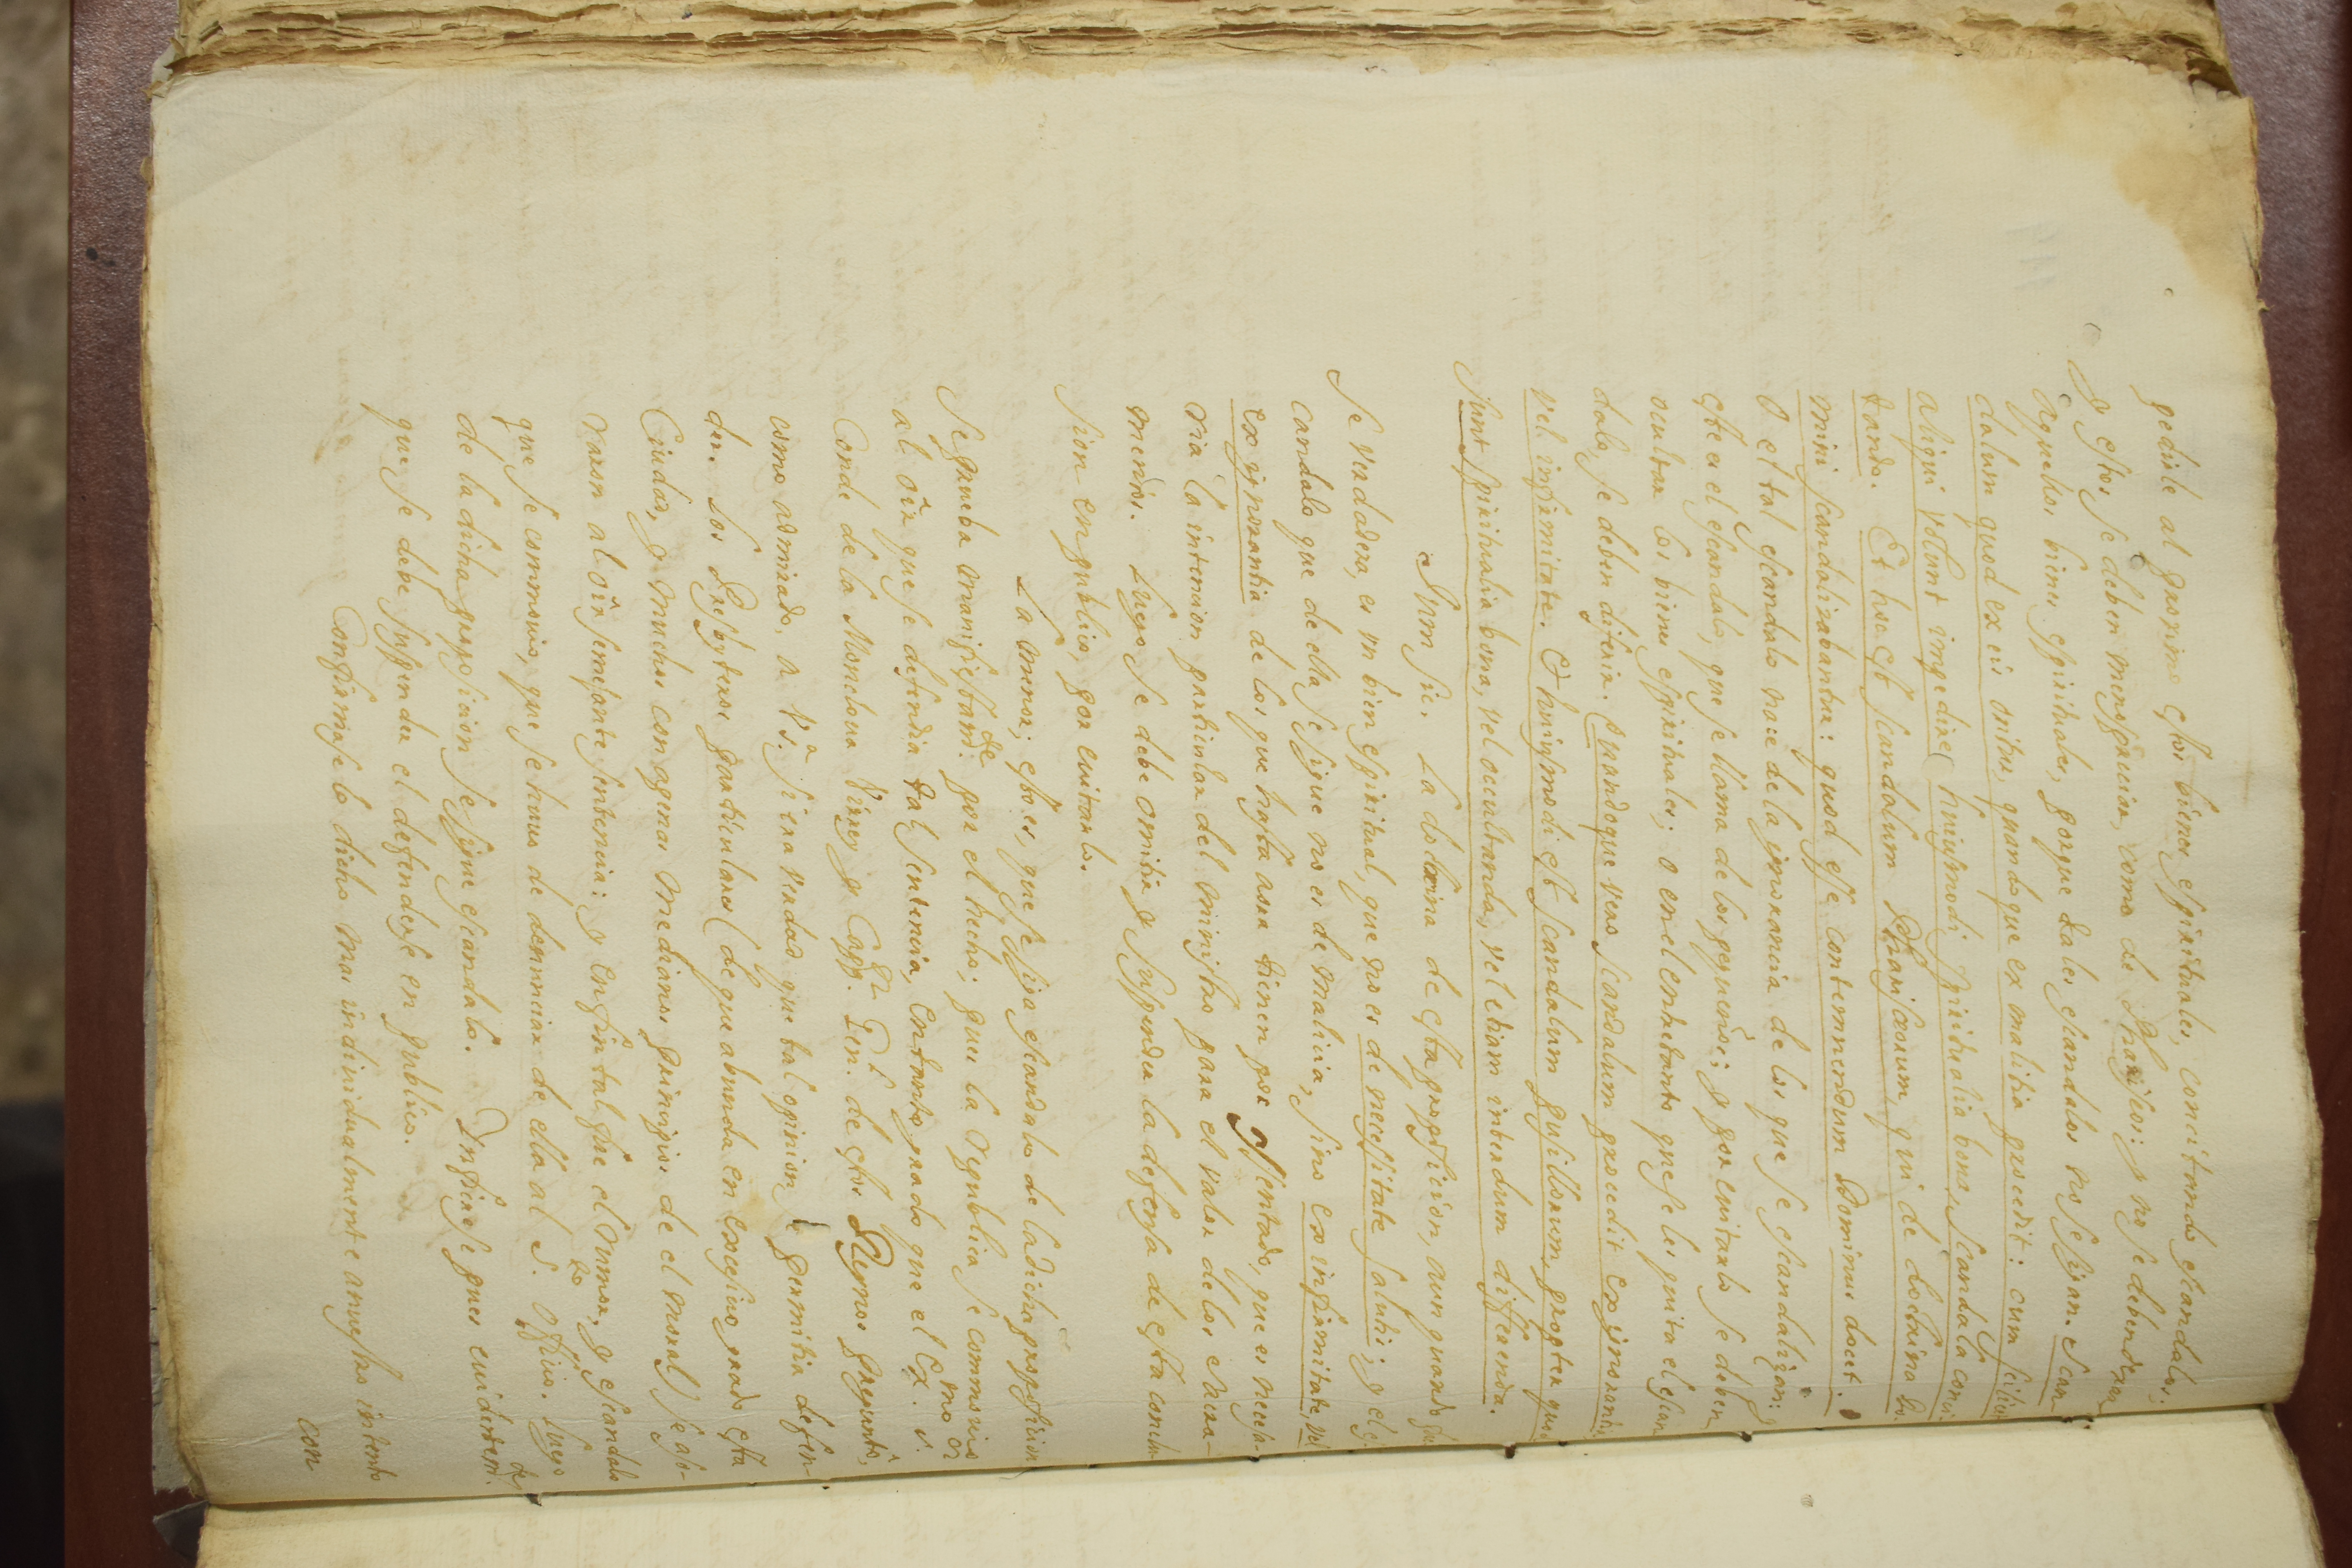 pedirle al proximo estos bienes espirituales, concitando escandalos;
y estos se deben menospreciar, como de Pharisseos: y no se deben dexar
aquellos bienes espirituales, porque tales escandalos no se sigan. Scan-
dalum quod ex eis oritur, quandoque ex malitia procedit: cum scilicet
aliqui volunt impedire huiusmodi spiritualia bona, scandala conci-
tando. Et hoc est scandalum Pharisæorum, qui de doctrina Do-
mini scandalizabantur: quod esse contemnendum Dominus docet.
O el tal escandalo nace de la ignorancia de los que se escandalizan: y
este es el escandalo, que se llama de los pequeños; y por euitarlo se deben
ocultar los bienes espirituales; o en el entretanto que se les quita el escan-
dalo, se deben diferir. Quandoque vero scandalum procedit ex ignorantia
vel infirmitate. Et huiusmodi est scandalum pusillorum, propter quod
sunt spiritualia bona, vel occultanda, vel etiam interdum differenda.
Sum sic. La doctrina de esta proposicion, aun quando fue-
se verdadera, es un bien espiritual, que no es de necessitate salutis; y el es-
candalo que de ella se sigue no es de malicia, sino ex infirmitate, vel
ex ignorantia de los que hasta aora tienen por assentado, que es necesa-
ria la intencion particular del ministro para el valor de los sacra-
mentos. Luego se debe omitir y suspender la defensa de esta conclu-
sion en publico, por euitarlo.
La menor; esto es, que se siga escandalo de la dicha proposicion
se prueba manifiestam.te por el hecho; pues la Republica se commovio
al oîr que se defendia tal sentencia, en tanto grado que el Ex.mo S.or
Conde de la Monclova Virrey y Capp.n Gen.l de estos Reynos preguntò,
como admirado, a V.S.a si era verdad que tal opinion se permitia defen-
der. Los Presbyteros particulares (de que abunda en excesivo grado esta
Ciudad, y muchos con apenas medianos principios de el moral) se aso-
raron al oîr semejante sentencia: y en fin tal fue el rumor, y escandalo
que se commovio, que se huuo de denunciar de ella al S.to Officio. Luego
de la dicha proposicion se sigue escandalo. Infierese pues euidentem.te
que se debe suspender el defenderse en publico.
Confirmase lo dicho mas indiuidualmente a nuestro intento
con